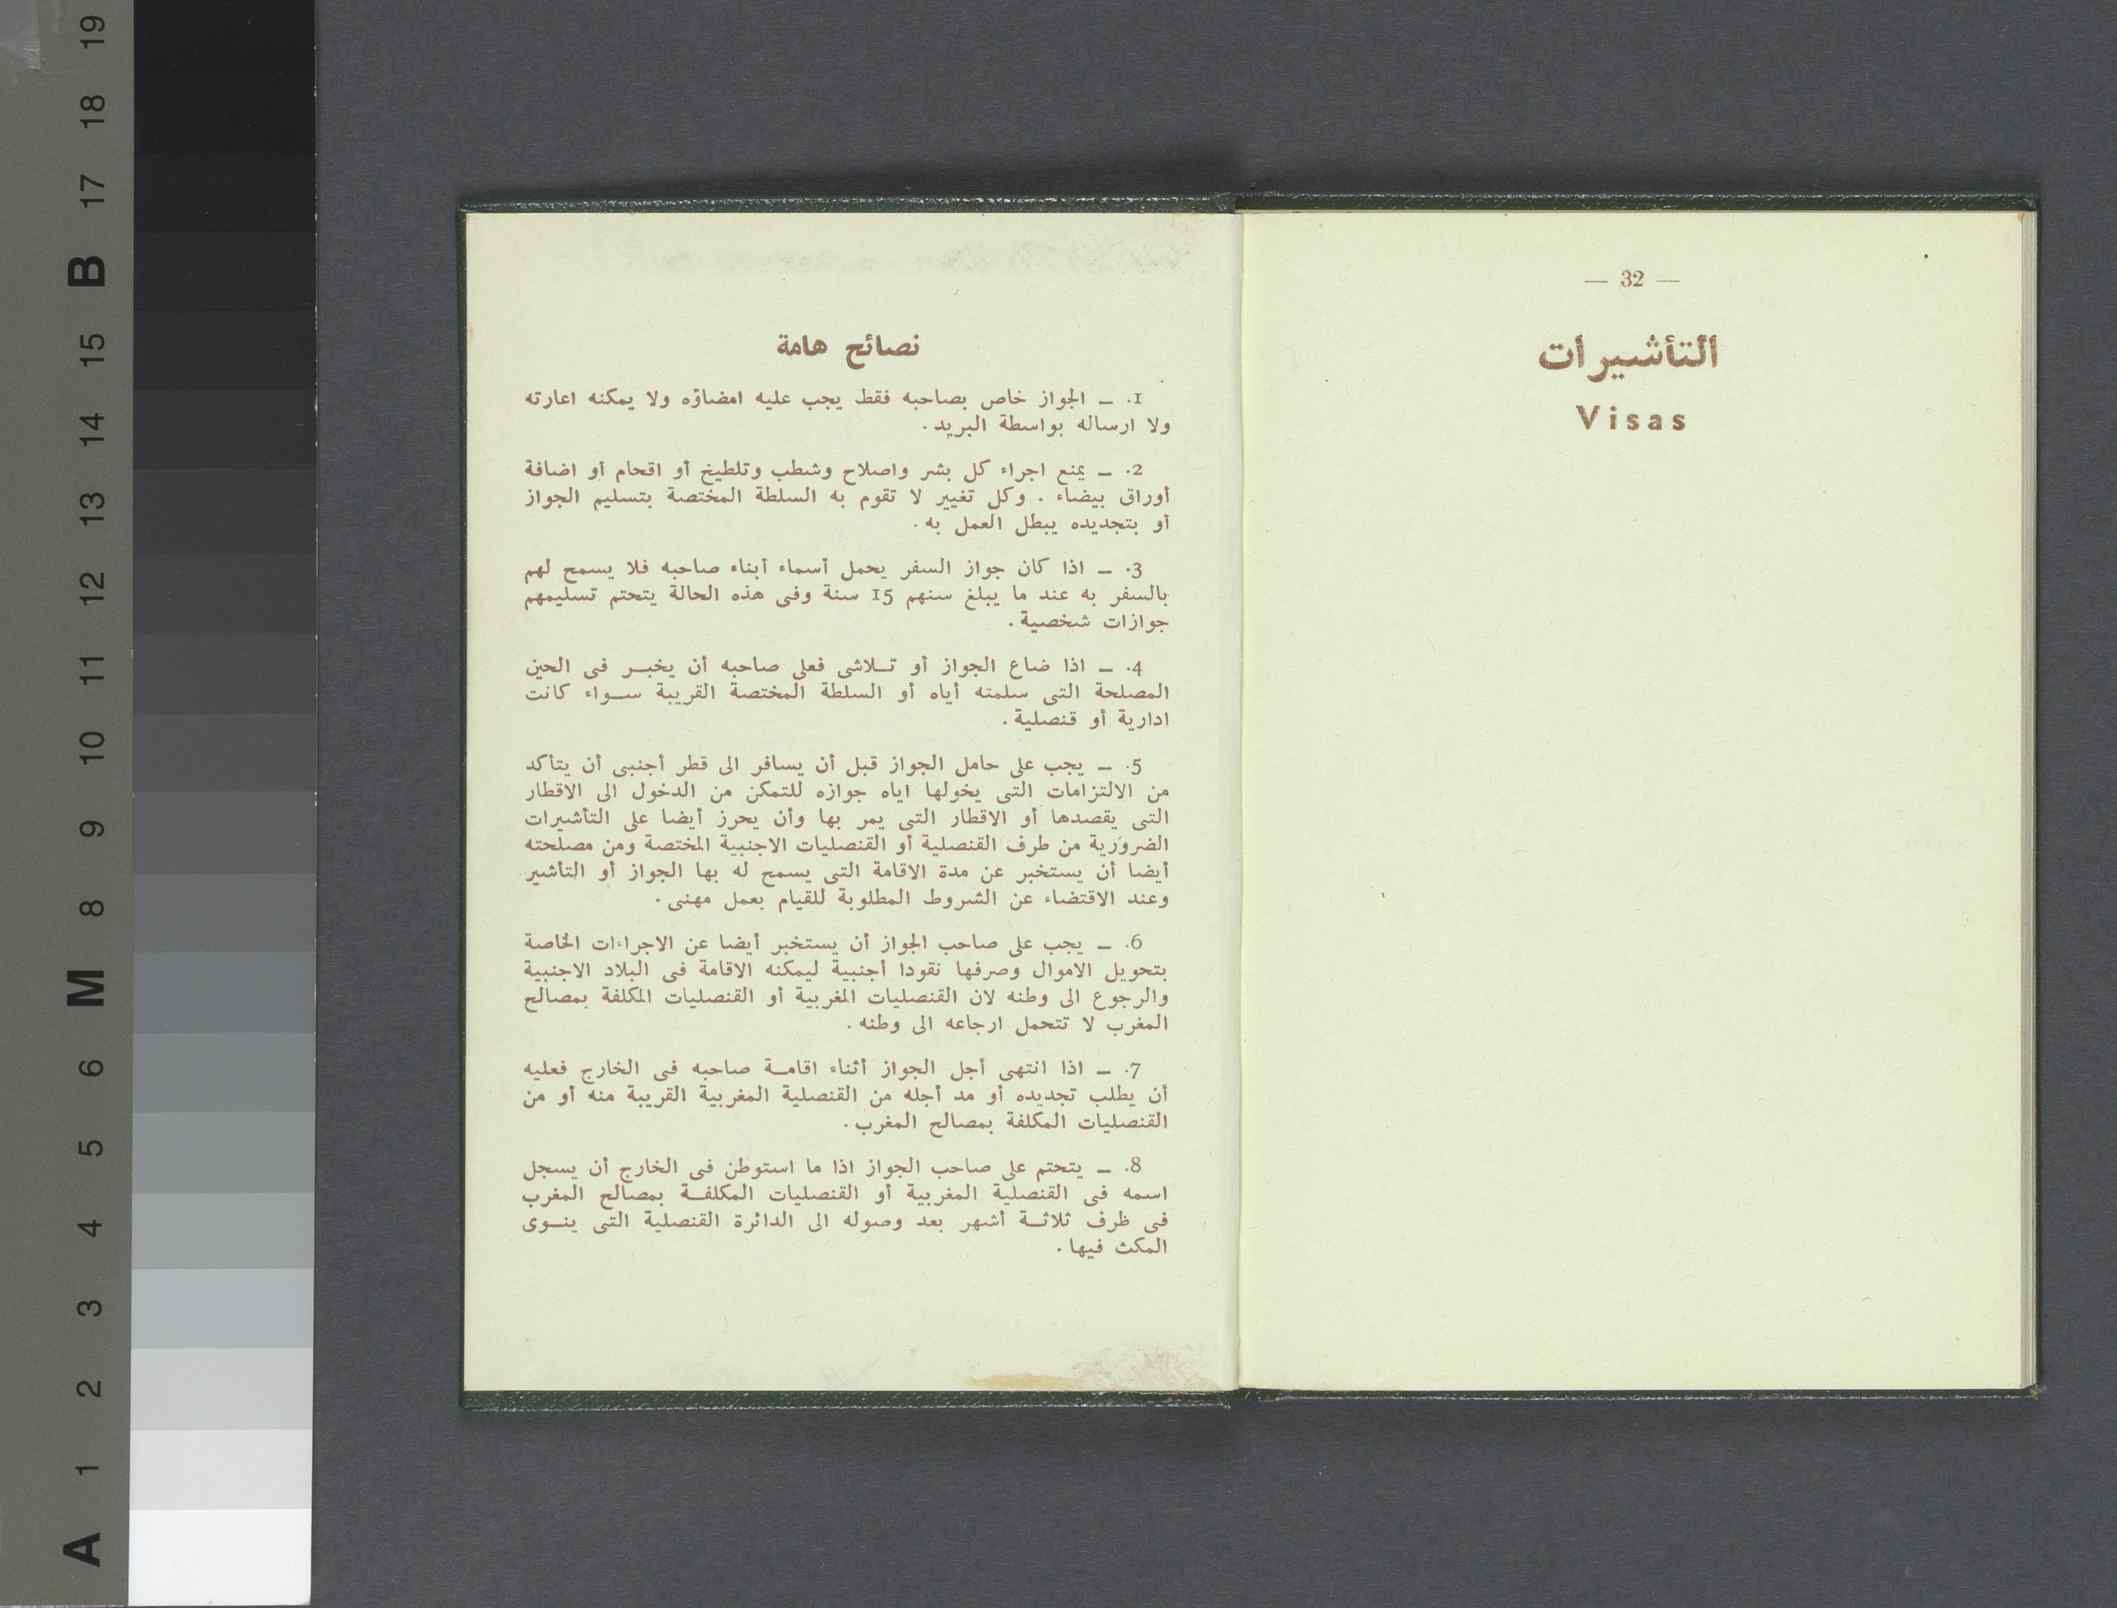 — 32 —
التأشيرات
Visas
نصائح هامة
1. — الجواز خاص بصاحبه فقط يجب عليه امضاؤه ولا يمكنه اعارته
ولا ارساله بواسطة البريد.
2. — يمنع اجراء كل بشر واصلاح وشطب وتلطيخ أو اقحام أو اضافة
أوراق بيضاء . وكل تغيير لا تقوم به السلطة المختصة بتسليم الجواز
أو بتجديده يبطل العمل به.
3. — اذا كان جواز السفر يحمل أسماء أبناء صاحبه فلا يسمح لهم
بالسفر به عند ما يبلغ سنهم 15 سنة وفى هذه الحالة يتحتم تسليمهم
جوازات شخصية.
4. — اذا ضاع الجواز أو تـلاشى فعلى صاحبه أن يخبـر فى الحين
المصلحة التى سلمته أياه أو السلطة المختصة القريبة سـواء كانت
ادارية أو قنصلية.
5. — يجب على حامل الجواز قبل أن يسافر الى قطر أجنبى أن يتأكد
من الالتزامات التى يخولها اياه جوازه للتمكن من الدخول الى الاقطار
التى يقصدها أو الاقطار التى يمر بها وأن يحرز أيضا على التأشيرات
الضرورية من طرف القنصلية أو القنصليات الاجنبية المختصة ومن مصلحته
أيضا أن يستخبر عن مدة الاقامة التى يسمح له بها الجواز أو التأشير
وعند الاقتضاء عن الشروط المطلوبة للقيام بعمل مهنى.
6. — يجب على صاحب الجواز أن يستخبر أيضا عن الاجراءات الخاصة
بتحويل الاموال وصرفها نقودا أجنبية ليمكنه الاقامة فى البلاد الاجنبية
والرجوع الى وطنه لان القنصليات المغربية أو القنصليات المكلفة بمصالح
المغرب لا تتحمل ارجاعه الى وطنه.
7. — اذا انتهى أجل الجواز أثناء اقامـة صاحبه فى الخارج فعليه
أن يطلب تجديده أو مد أجله من القنصلية المغربية القريبة منه أو من
القنصليات المكلفة بمصالح المغرب.
8. — يتحتم على صاحب الجواز اذا ما استوطن فى الخارج أن يسجل
اسمه فى القنصلية المغربية أو القنصليات المكلفـة بمصالح المغرب
فى ظرف ثلاثـة أشهر بعد وصوله الى الدائرة القنصلية التى ينـوى
المكث فيها.
A 1 2 3 4 5 6 M 8 9 10 11 12 13 14 15 B 17 18 19